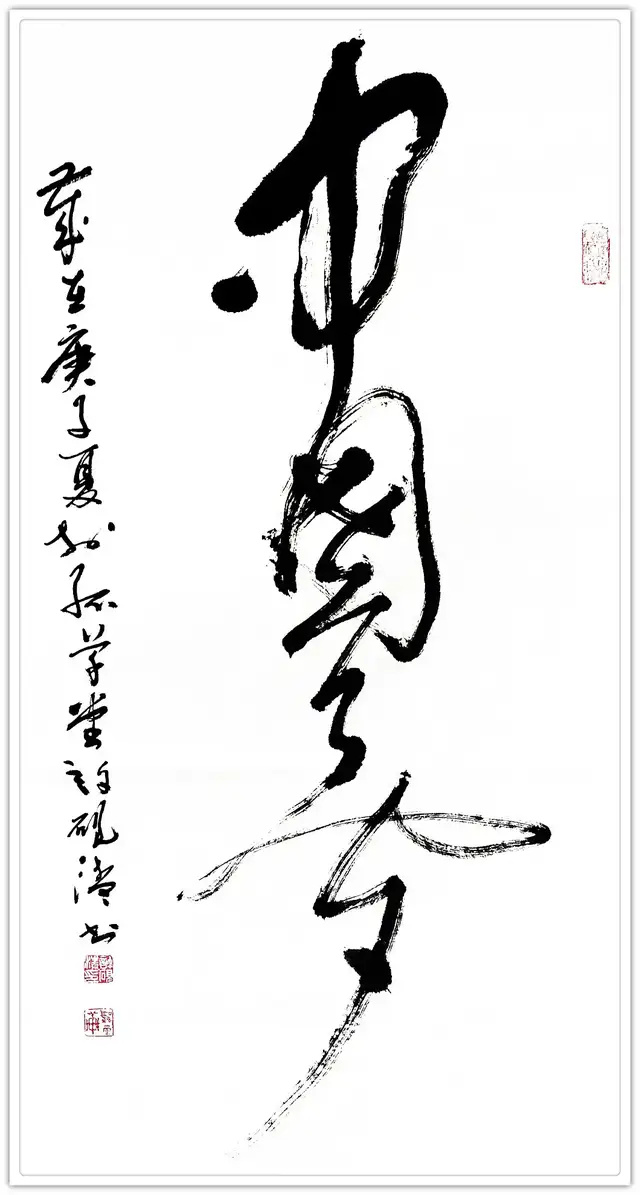 中國夢
歲在庚子夏於孤草堂許硯清書